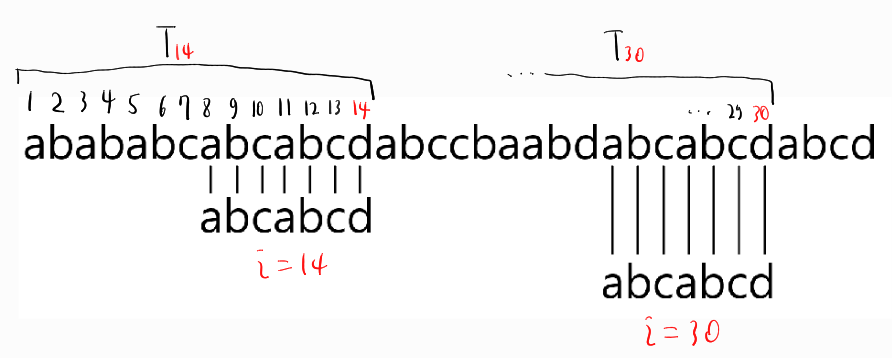 T14 T30
1 2 3 4 5 6 7 8 9 10 11 12 13 14 ... ... 29 30
abababcabcabcdabccbaabdabcabcdabcd
abcabcd
i=14
abcabcd
i=30